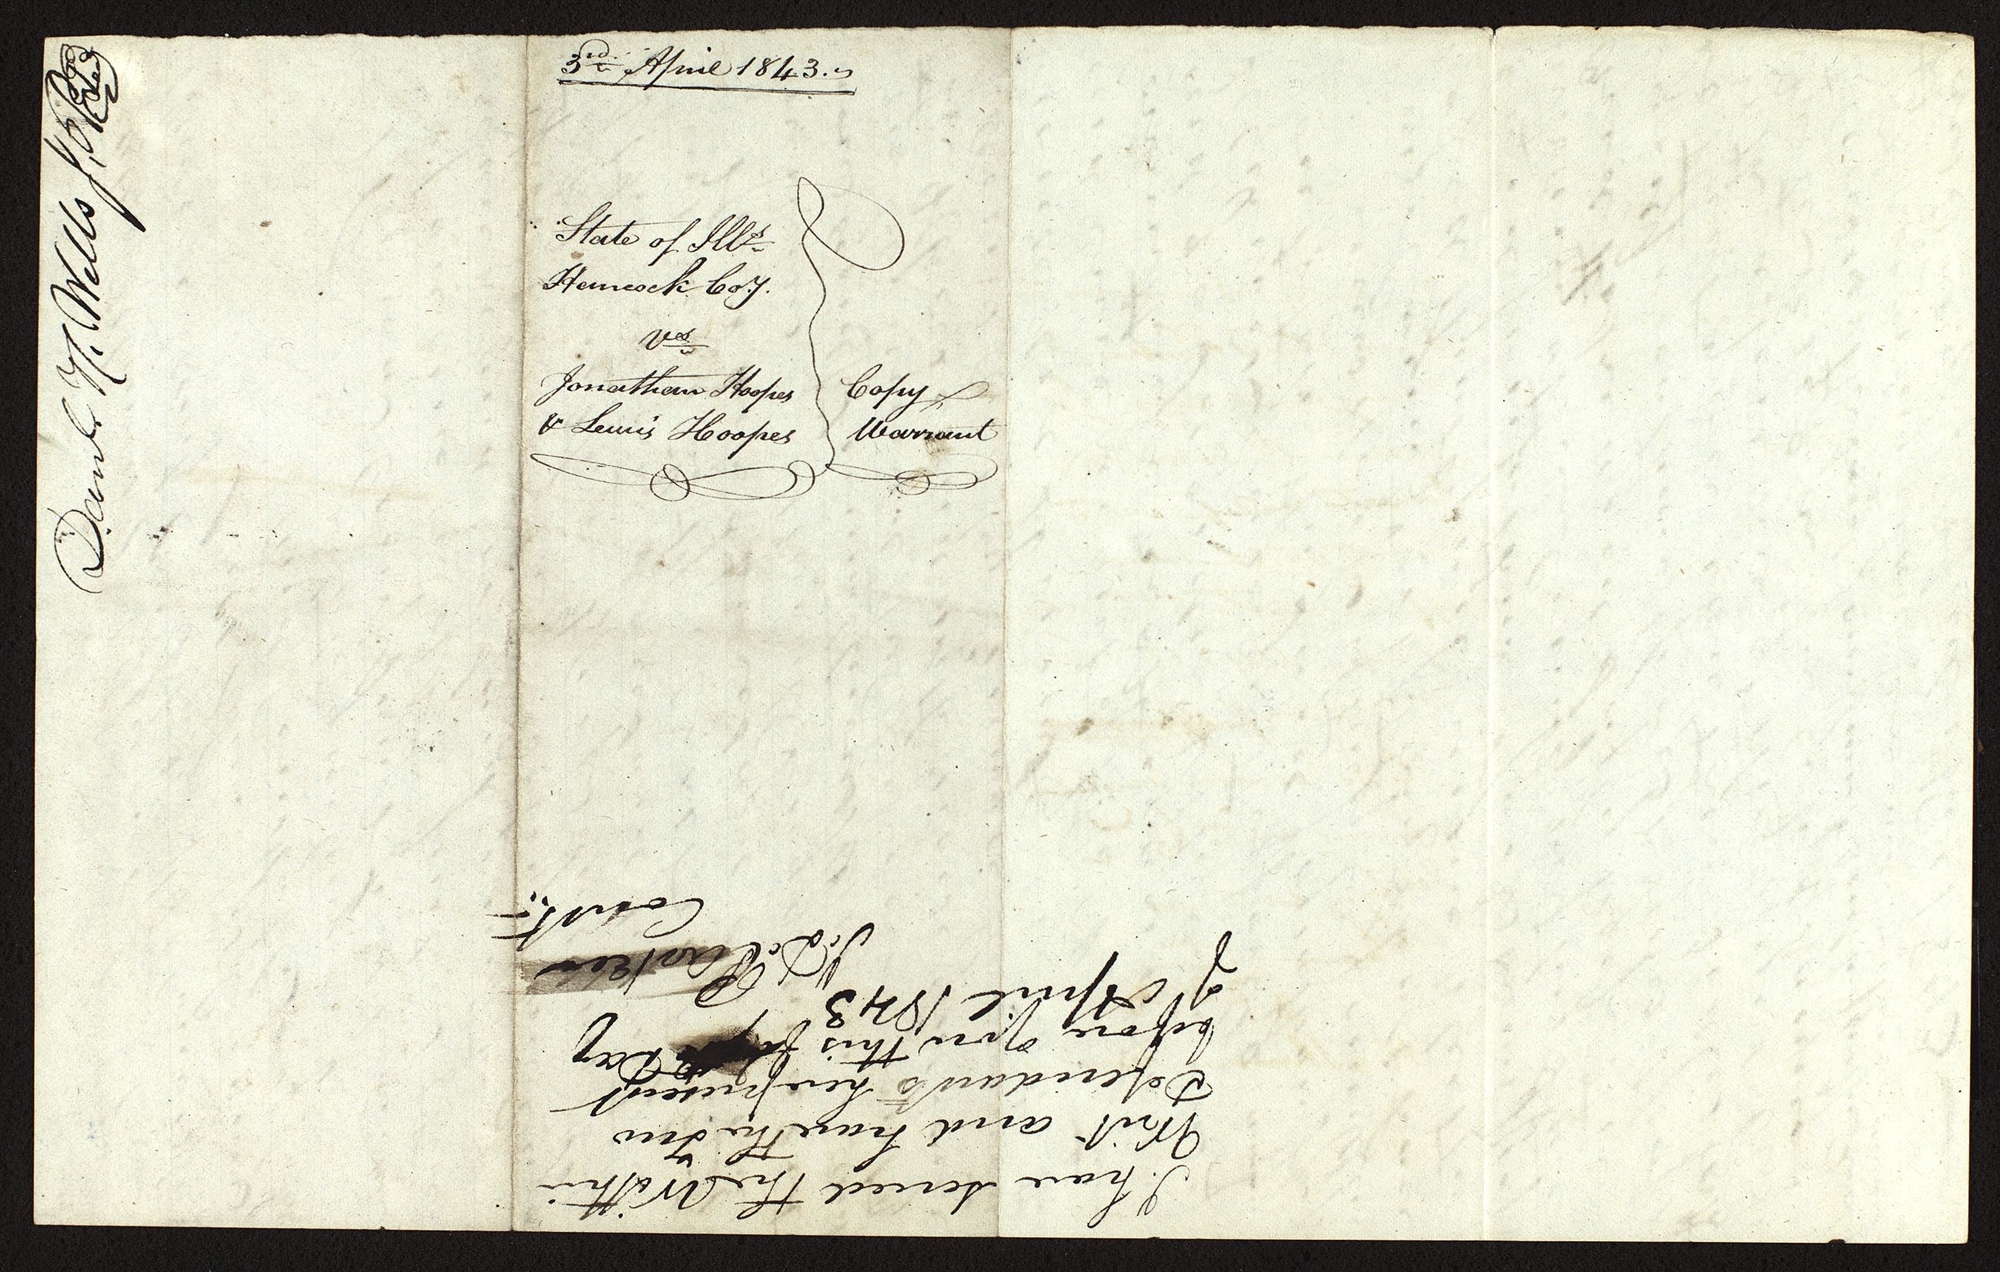 3rd. April 1843.
State of Ills.
Hancock Coy.
vs
Jonathan Hoopes
& Lewis Hoopes
Copy
Warrant
Danl. H. Wells J. P.
I have served the Within
Writ and have the two
Defendants here present
before you this Day
of April 1843
J. D. Parker
Const.